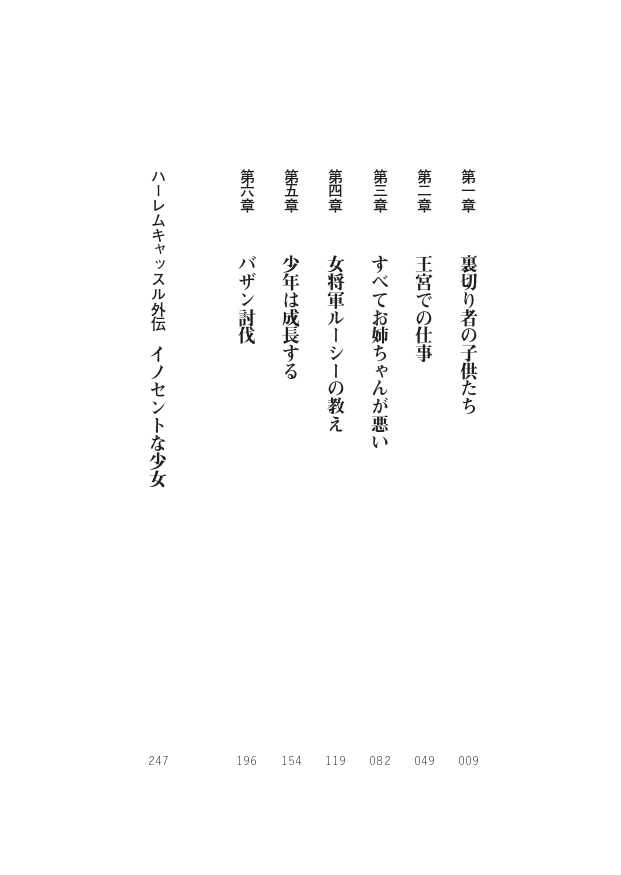 第一章 裏切り者の子供たち 009
第二章 王宮での仕事 049
第三章 すべてお姉ちゃんが悪い 082
第四章 女将軍ルーシーの教え 119
第五章 少年は成長する 154
第六章 バザン討伐 196
ハーレムキャッスル外伝 イノセントな少女 247